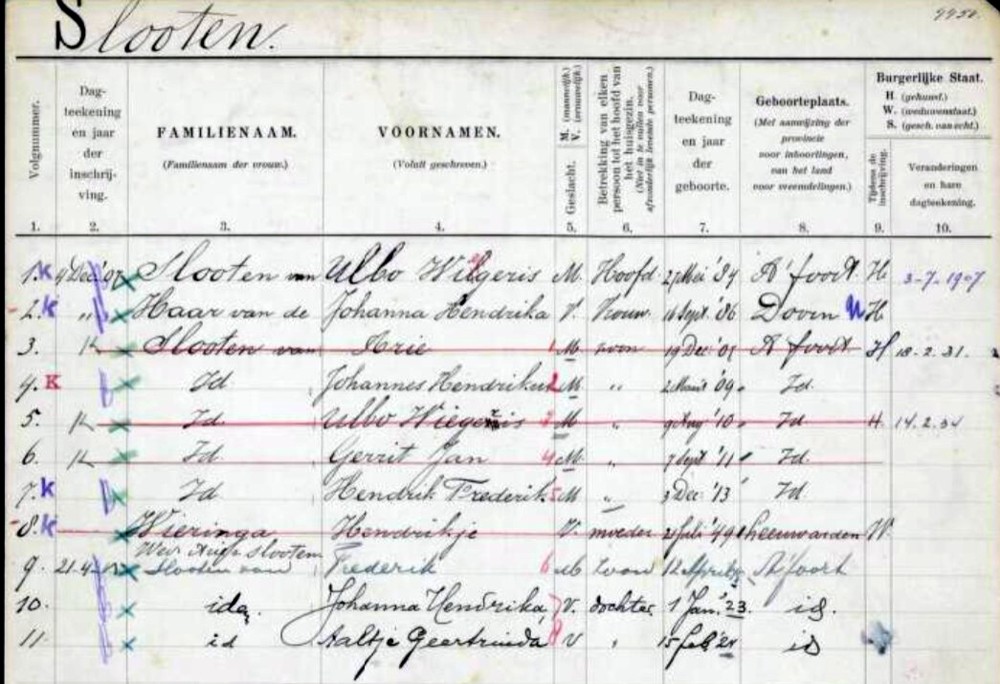 Slooten.
Volgnummer.
Dag-
teekening
en jaar
der
inschrij-
ving.
FAMILIENAAM.
(Familienaam der vrouw.)
VOORNAMEN.
(Voluit geschreven.)
M. (mannelijk.)
V. (vrouwelijk.)
Geslacht.
Betrekking van elken
persoon tot het hoofd van
het huisgezin.
(Niet in te vullen voor
afzonderlijk levende personen.)
Dag-
teekening
en jaar
der
geboorte.
Geboorteplaats.
(Met aanwijzing der
provincie
voor inboorlingen,
van het land
voor vreemdelingen.)
Burgerlijke Staat.
H. (gehuwd.)
W. (weduwenstaat.)
S. (gesch. van echt.)
Tijdens de
inschrijving.
Veranderingen
en hare
dagteekening.
1. 2. 3. 4. 5. 6. 7. 8. 9. 10.
1. K Dec '07 Slooten van Ulbo M. Hoofd 27 Mei '84 A'foort H 3-7-1907
2. K " Haar van de Johanna Hendrika V. Vrouw 16 Sept. '86 Doorn H
3. K Slooten van Arie 1 M zoon A'foort H 18.2.31.
4. K Id Johannes Hendrikus 2 M " '09 Id.
5. K Id. Ulbo M " 9 Aug '10 Id H. 14.2.34
6. K Id Gerrit Jan 4 M " 7 Sept '11 Id.
7. K Id Hendrik Frederik 5 M " 3 Dec. '13 Id.
8. K Wieringa Hendrikje V. moeder '49 Leeuwarden W.
Slooten
9. Slooten van Frederik 6 M zoon 12 April A'foort
10. idem Johanna Hendrika 7 V. dochter 1 Jan. '23. id.
11 id Aaltje Geertruida 8 V " 15 Feb '24 id